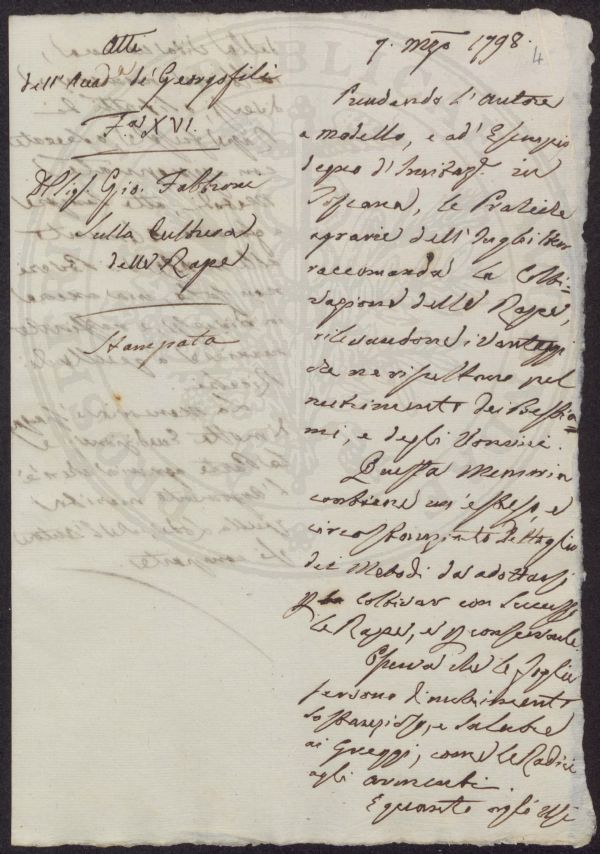 Atti
dell'Accad.ª de' Georgofili
F.ª XVI.
Del Sig.r Gio. Fabbroni
Sulla Cultura
delle Rape
Stampata
7. Mzo 1798.
4
Prendendo l'autore
a modello, e ad' Esempio
degno d' in
Toscana, le Pratiche
agrarie dell' Inghilterra
raccomanda la Colti=
vazione delle Rape,
rilevandone i vantaggi
che ne risultano pel
nutrimento dei Bestia=
mi, e degli Uomini.
Questa Memoria
contiene un' esteso, e
circostanziato dettaglio
dei Metodi da adottarsi
p coltivar con successo
le Rape, e p conservarle.
Osserva che le foglie
servono di nutrimento
e salubre
ai Greggi, come le Radici
agli armenti.
E quanto agli Usi